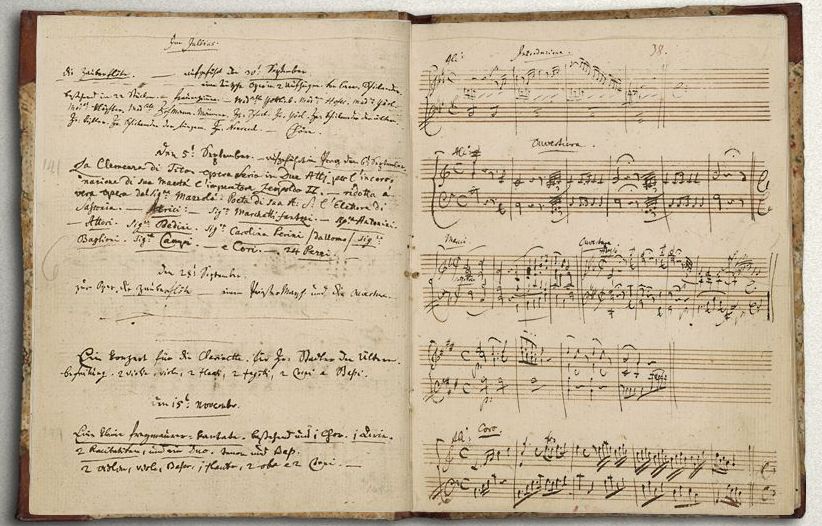 Im Jullius.
die Zauberflöte. — aufgeführt den 30t September.
eine teutsche Oper in 2 Aufzügen. von Eman. Schikaneder
bestehend in 22 Stücken. — Mad:selle Gottlieb. Mad:me Hofer. Mad:me Görl.
Hr: Schikaneder der jüngere. Hr: Nouseul. — Chöre.
Den 5t September. — aufgeführt in Prag den 6t September.
La Clemenza di Tito. opera seria in Due Atti. per l'incoro-
nazione di sua maestà l'imperatore Leopoldo II. — ridotta à
vera opera dal Sig:re Mazzolà. Poeta di sua A: S: l'Elettore di
Sassonia. — Atrici: — Sig:ra Marchetti fantozi. — Sig:ra Antonini.
— Attori. Sig:re Bedini. Sig:ra Carolina Perini / da uomo / Sig:re
Baglioni. Sig:re Campi. — e Cori. — 24 Pezzi. —
Den 28t September.
zur Oper. die Zauberflöte — einen Priester Marsch und die Ouverture.
Ein konzert für die Clarinette. für Hr: Stadler den Ältern.
begleitung. 2 violini, viola, 2 flauti, 2 fagotti, 2 Corni e Baßi.
den 15t Novembr.
Eine kleine freymaurer-kantate. bestehend aus 1 Chor. 1 Aria.
2 Recitativen, und ein Duo. tenor und Baß.
2 violini, viola, Basso, 1 flauto, 2 oboe e 2 Corni. —
141
38.
All: Introduzione.
Ouvertura.
All:
Marcia Ouverture
All: Coro.